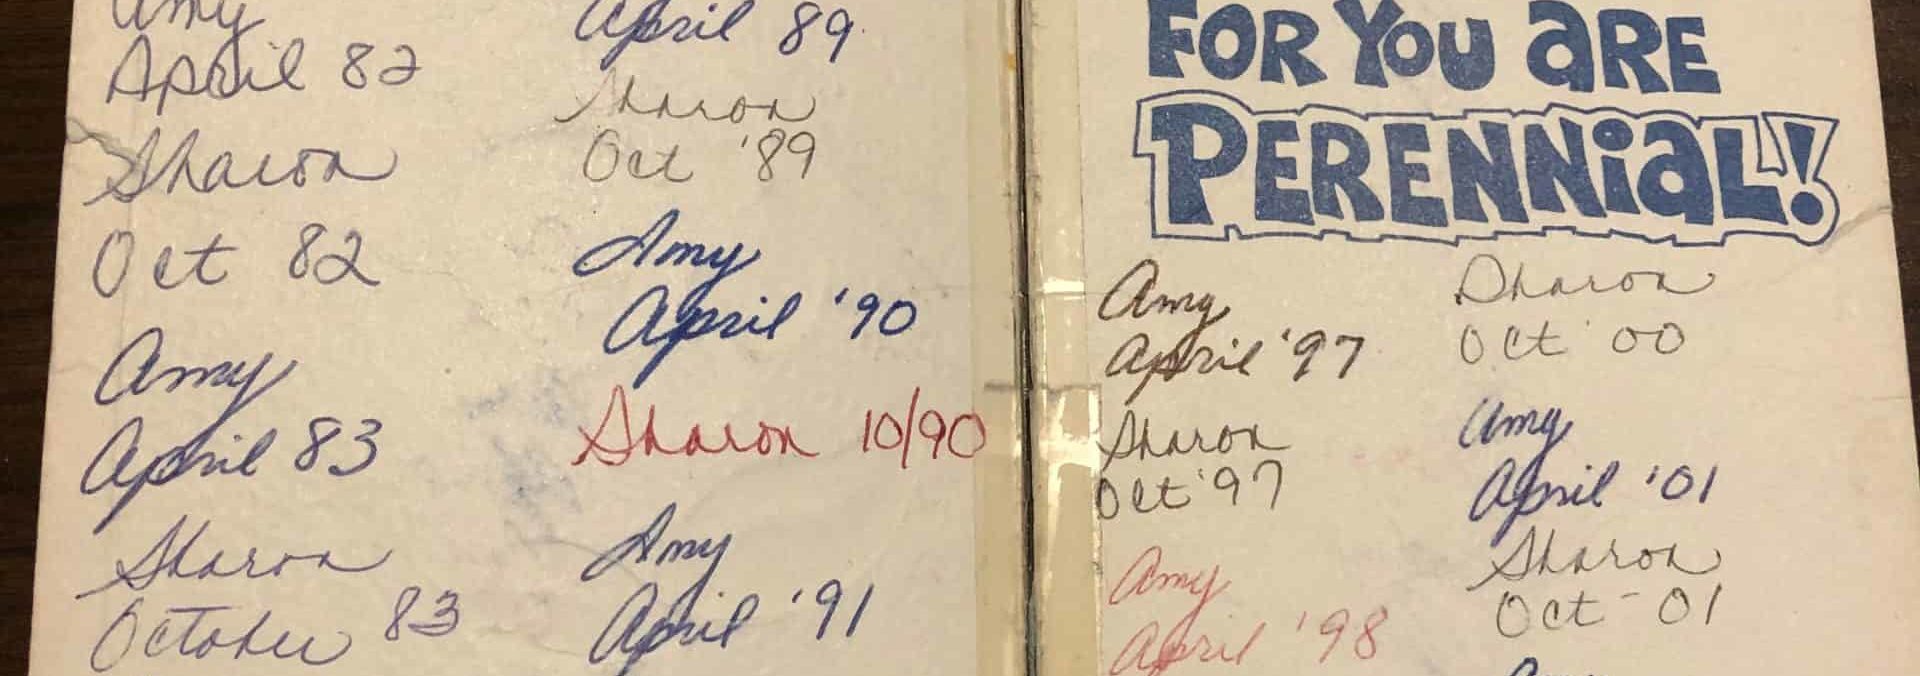 Amy
April 82
Sharon
Oct 82
Amy
April 83
Sharon
October 83
April 89
Sharon
Oct '89
Amy
April '90
Sharon 10/90
Amy
April '91
FOR YOU aRE
PERENNiaL!
Amy
April '97
Sharon
Oct '97
Amy
April '98
Sharon
Oct '00
Amy
April '01
Sharon
Oct - 01
Amy